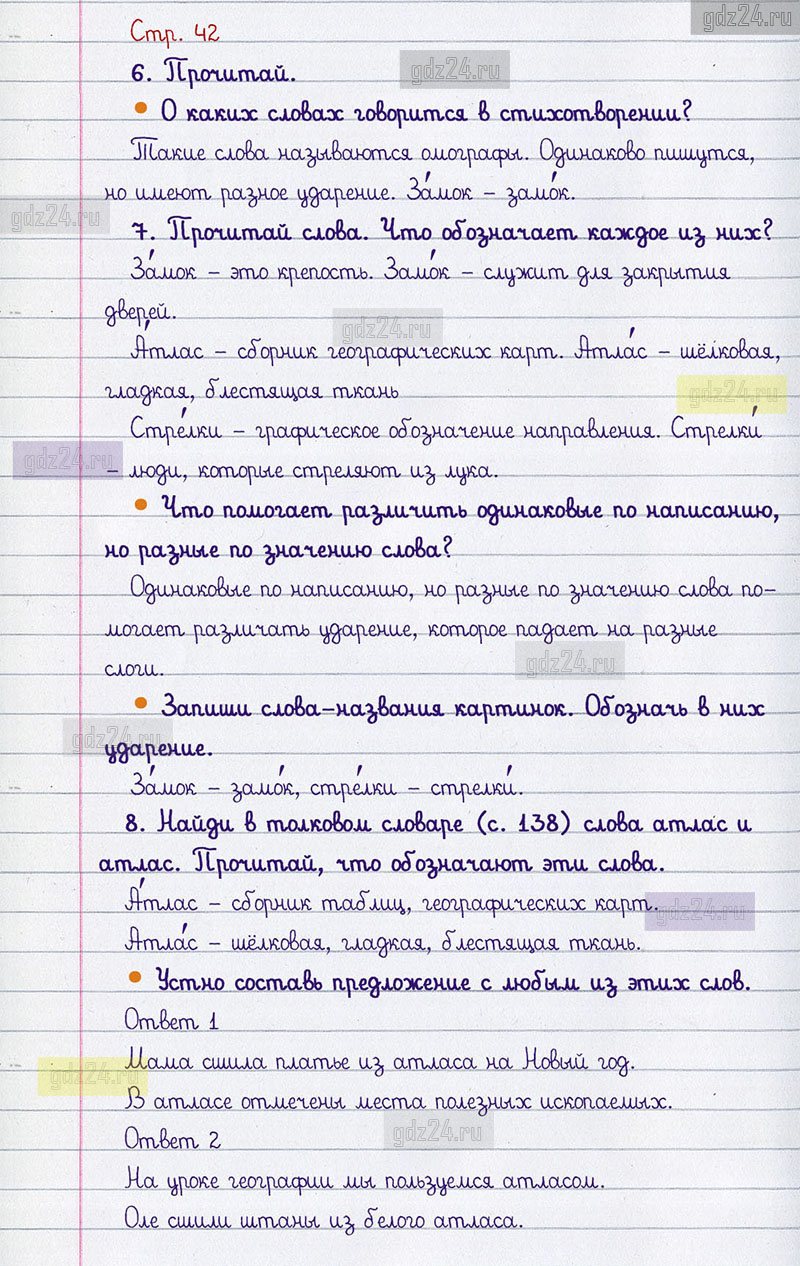 gdz24.ru
Стр. 42
6. Прочитай.
gdz24.ru
• О каких словах говорится в стихотворении?
Такие слова называются омографы. Одинаково пишутся,
но имеют разное ударение. За́мок – замо́к.
gdz24.ru
7. Прочитай слова. Что обозначает каждое из них?
За́мок – это крепость. Замо́к – служит для закрытия
дверей.
gdz24.ru
А́тлас – сборник географических карт. Атла́с – шёлковая,
гладкая, блестящая ткань
gdz24.ru
Стре́лки – графическое обозначение направления. Стрелки́
gdz24.ru
– люди, которые стреляют из лука.
• Что помогает различить одинаковые по написанию,
но разные по значению слова?
Одинаковые по написанию, но разные по значению слова по-
могает различать ударение, которое падает на разные
слоги.
gdz24.ru
• Запиши слова-названия картинок. Обозначь в них
gdz24.ru
ударение.
За́мок – замо́к, стре́лки – стрелки́.
8. Найди в толковом словаре (с. 138) слова атлас и
атлас. Прочитай, что обозначают эти слова.
А́тлас – сборник таблиц, географических карт.
gdz24.ru
Атла́с – шёлковая, гладкая, блестящая ткань.
• Устно составь предложение с любым из этих слов.
Ответ 1
Мама сшила платье из атласа на Новый год.
gdz24.ru
В атласе отмечены места полезных ископаемых.
gdz24.ru
Ответ 2
На уроке географии мы пользуемся атласом.
Оле сшили штаны из белого атласа.